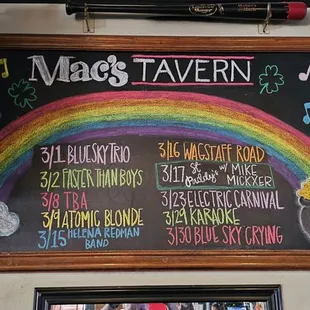 Mac's TAVERN
3/1 BLUESKY TRIO
3/2 FASTER THAN BOYS
3/8 TBA
3/9 ATOMIC BLONDE
3/15 HELENA REDMAN
BAND
3/16 WAGSTAFF ROAD
3/17 St Paddy's w/ MIKE
MICKXER
3/23 ELECTRIC CARNIVAL
3/29 KARAOKE
3/30 BLUE SKY CRYING